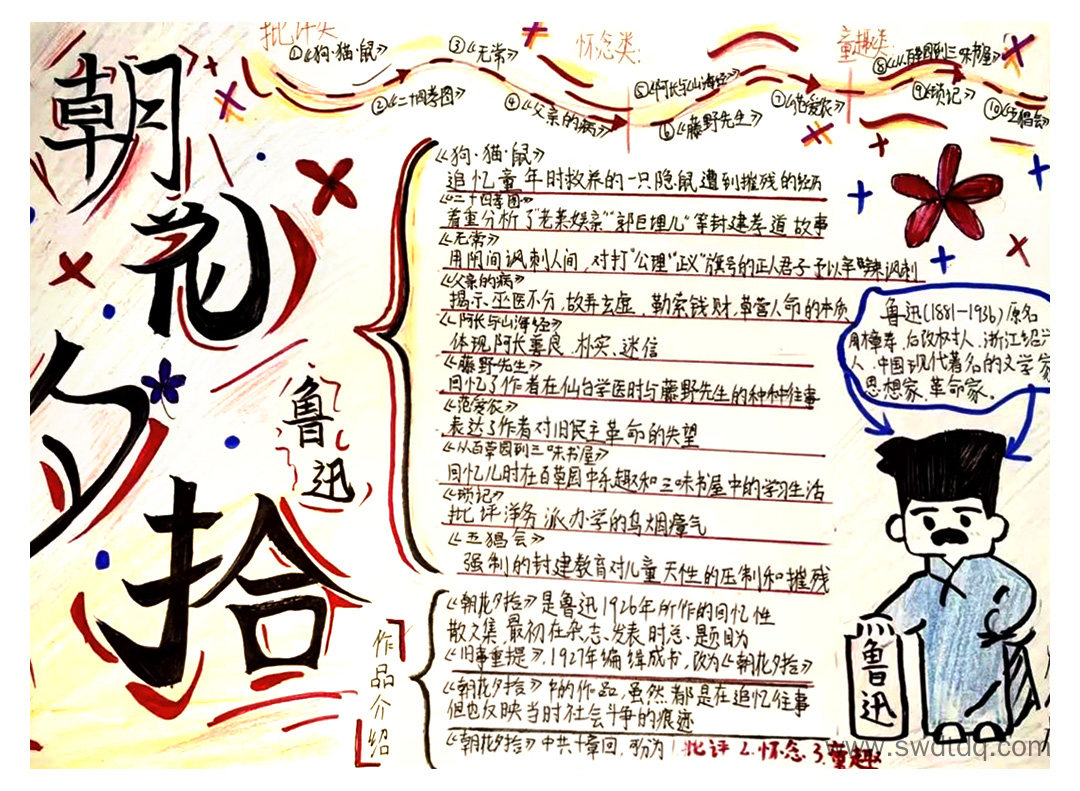 朝花夕拾
鲁迅
批评类
怀念类:
童趣类:
①《狗·猫·鼠》
②《二十四孝图》
③《无常》
④《父亲的病》
⑤《阿长与山海经》
⑥《藤野先生》
⑦《范爱农》
⑧《从百草园到三味书屋》
⑨《琐记》
⑩《五猖会》
《狗·猫·鼠》
追忆童年时救养的一只隐鼠遭到摧残的经历
《二十四孝图》
着重分析了"老莱娱亲""郭巨埋儿"等封建孝道故事
《无常》
用阴间讽刺人间,对打"公理""正义"旗号的正人君子予以辛辣讽刺
《父亲的病》
揭示、巫医不分,故弄玄虚、勒索钱财,草菅人命的本质
《阿长与山海经》
体现阿长善良、朴实、迷信
《藤野先生》
回忆了作者在仙台学医时与藤野先生的种种往事
《范爱农》
表达了作者对旧民主革命的失望
《从百草园到三味书屋》
回忆儿时在百草园中乐趣和三味书屋中的学习生活
《琐记》
批评洋务派办学的乌烟瘴气
《五猖会》
强制的封建教育对儿童天性的压制和摧残
作品介绍
《朝花夕拾》是鲁迅1926年所作的回忆性
散文集,最初在杂志、发表时总、题目为
《旧事重提》,1927年编辑成书,改为《朝花夕拾》
《朝花夕拾》中的作品,虽然都是在追忆往事
但也反映当时社会斗争的痕迹
《朝花夕拾》中共十章回,可分为1.批评2.怀念3.童趣
鲁迅(1881-1936)原名
周樟寿,后改树人,浙江绍兴
人,中国现代著名的文学家
思想家、革命家。
鲁迅
www.swdtdq.com